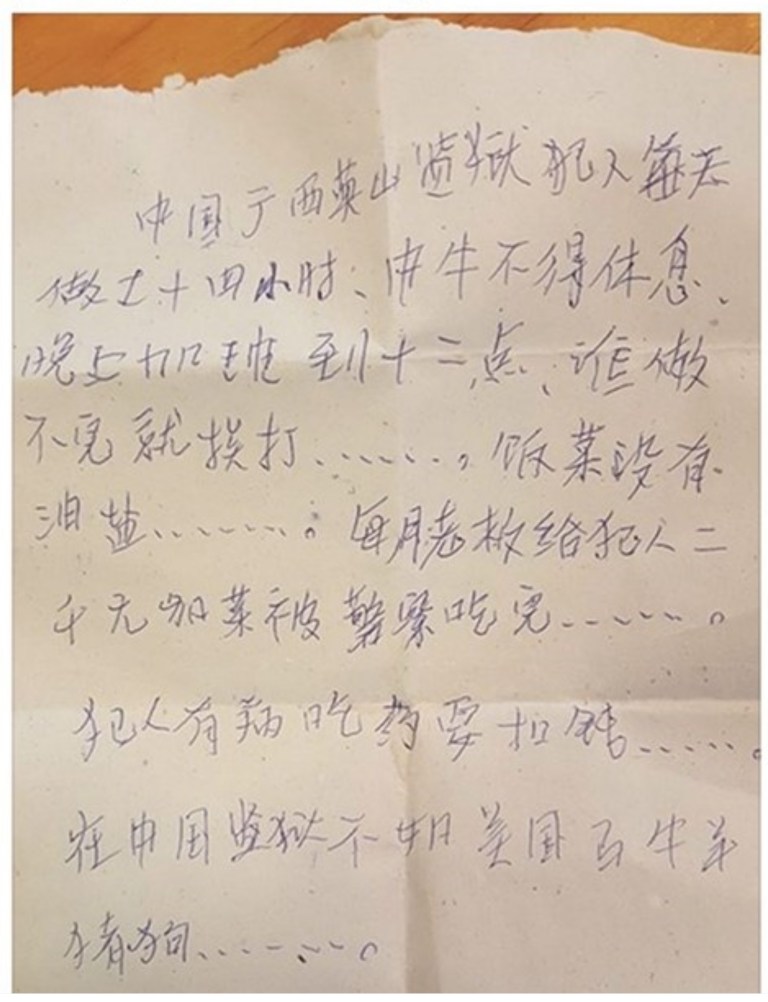 中国广西英山监狱犯人每天
做工十四小时、中午不得休息、
晚上加班到十二点、谁做
不完就挨打........。饭菜没有
油盐........。每月老板给犯人二
千元加菜被警察吃完........。
犯人有病吃药要扣钱......。
在中国监狱不如美国马牛羊
猪狗........。